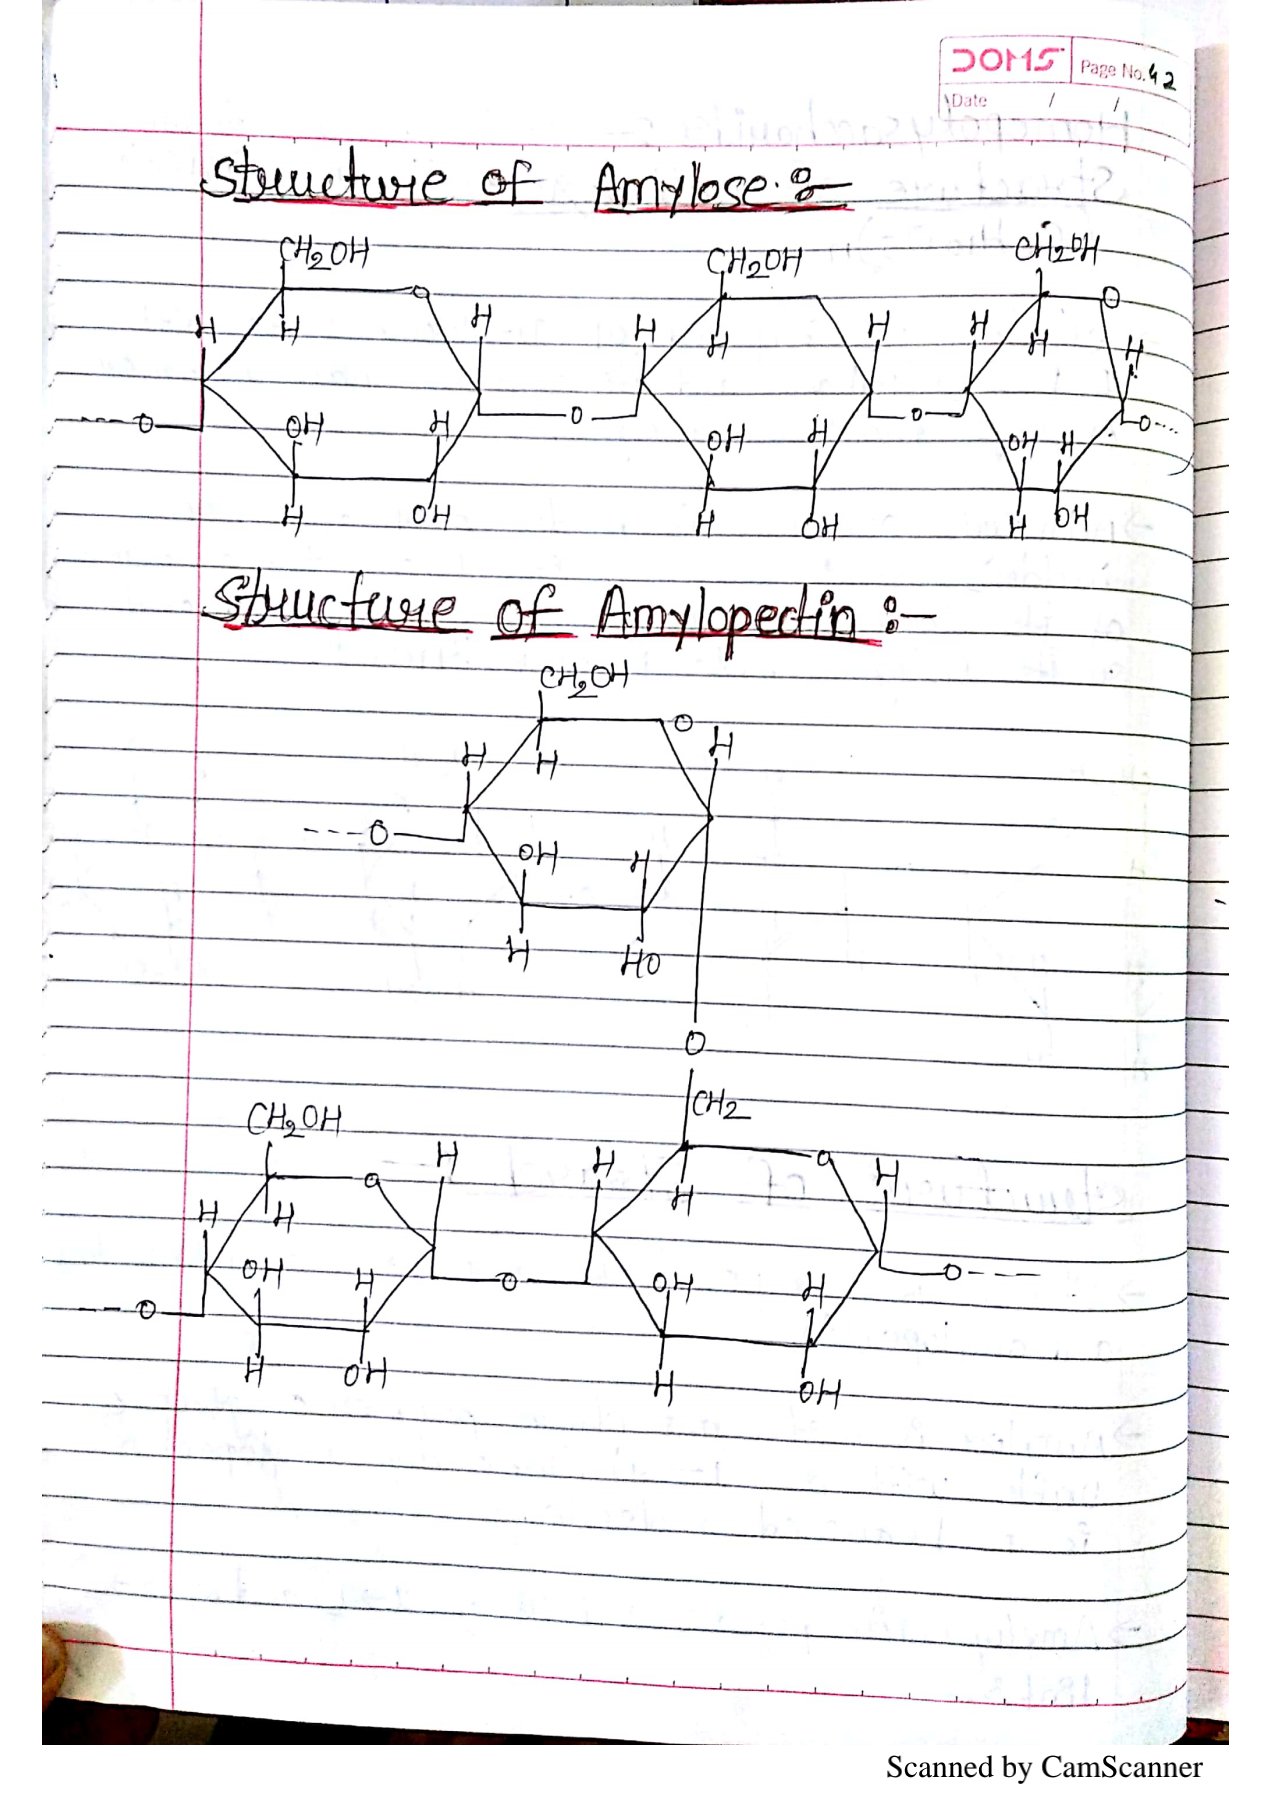 DOMS
Page No. 42
Date / /
Structure of Amylose :-
CH2OH CH2OH CH2OH
O O
H H H H H H
H H H
---O O O O---
OH H OH H OH H
H OH H OH H OH
Structure of Amylopectin :-
CH2OH
O
H H H
---O
OH H
H HO
O
CH2OH CH2
H H H
O O
H H H
OH H OH H
---O O O---
H OH H OH
Scanned by CamScanner